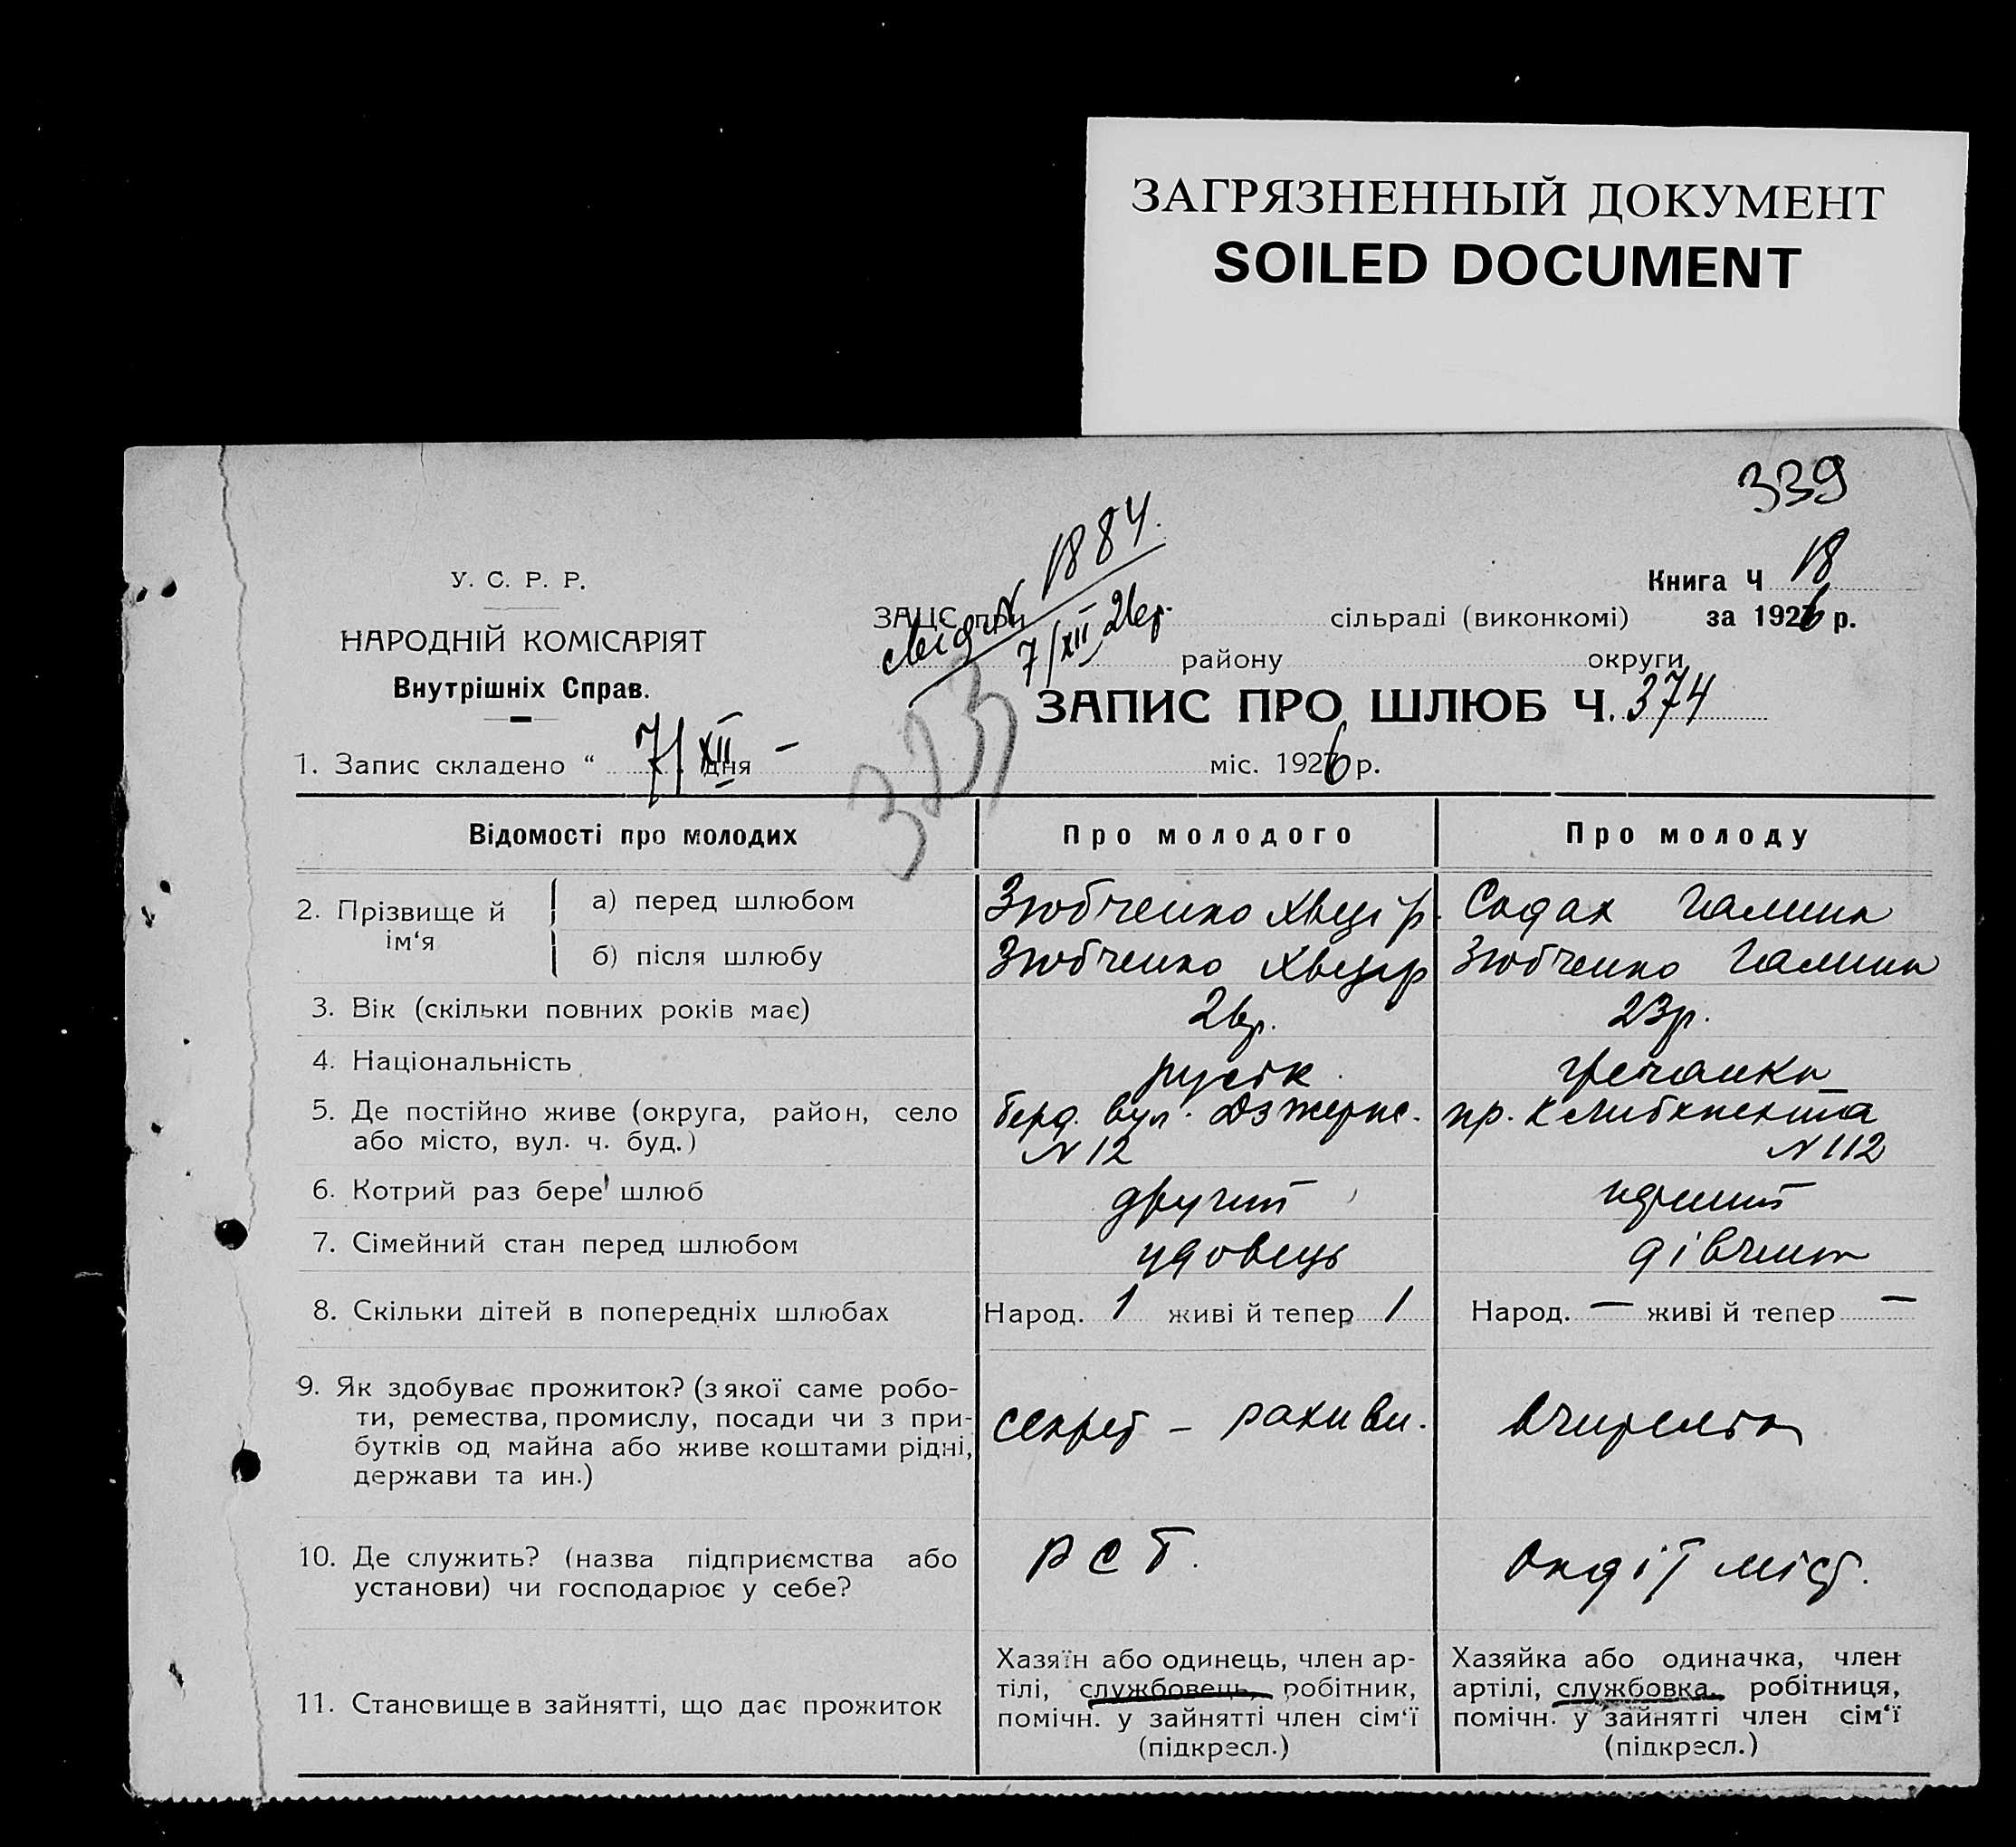 ЗАГРЯЗНЕННЫЙ ДОКУМЕНТ
SOILED DOCUMENT
339
У. С. Р. Р.
НАРОДНІЙ КОМІСАРІЯТ
Внутрішніх Справ.
1884.
7/XII 26р.
Книга Ч 18
ЗАЦС при сільраді (виконкомі) за 1926 р.
району округи
ЗАПИС ПРО ШЛЮБ Ч. 374
323
1. Запис складено “ 7/XII – дня міс. 1926 р.
Відомості про молодих Про молодого Про молоду
2. Прізвище й ім‘я
а) перед шлюбом Зюбченко Хведір. Содах Галина
б) після шлюбу Зюбченко Хведір Зюбченко Галина
3. Вік (скільки повних років має) 26р. 23р.
4. Національність руськ. гречанка
5. Де постійно живе (округа, район, село вул. Дзержис. пр.
або місто, вул. ч. буд.) N 12 N 112
6. Котрий раз бере шлюб другий перший
7. Сімейний стан перед шлюбом удовець дівчина
8. Скільки дітей в попередніх шлюбах Народ. 1 живі й тепер 1 Народ. — живі й тепер —
9. Як здобуває прожиток? (з якої саме робо-
ти, ремества, промислу, посади чи з при-
бутків од майна або живе коштами рідні,
держави та ин.)
секрет – рахиви. вчителька
10. Де служить? (назва підприємства або
установи) чи господарює у себе?
Р С Т. міст.
11. Становище в зайнятті, що дає прожиток
Хазяїн або одинець, член ар-
тілі, службовець, робітник,
помічн. у зайнятті член сім‘ї
(підкресл.)
Хазяйка або одиначка, член
артілі, службовка, робітниця,
помічн. у зайнятті член сім‘ї
(підкресл.)